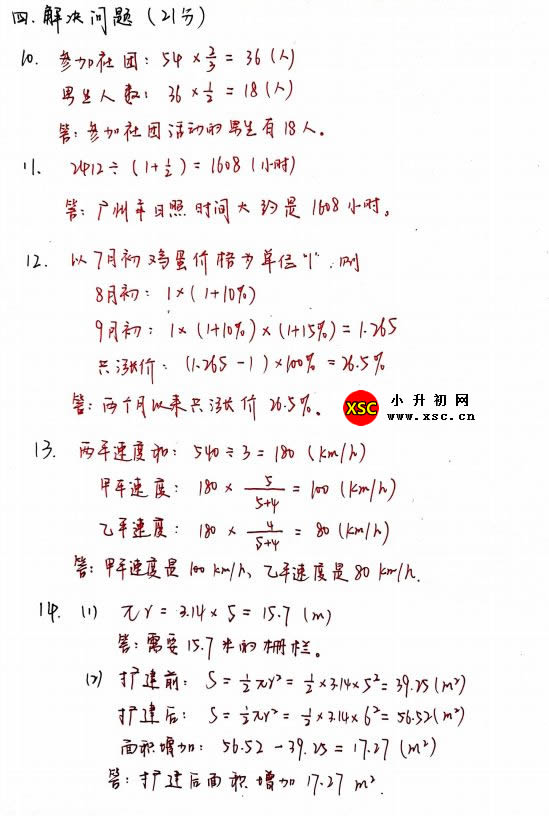 四.解决问题(21分)
10. 参加社团: 54 × 2/3 = 36 (人)
男生人数: 36 × 1/2 = 18 (人)
答: 参加社团活动的男生有18人。
11. 2412 ÷ (1+1/2) = 1608 (小时)
答: 广州年日照时间大约是1608小时。
12. 以7月初鸡蛋价格为单位"1", 则
8月初: 1×(1+10%)
9月初: 1×(1+10%)×(1+15%) = 1.265
共涨价: (1.265-1)×100% = 26.5%
答: 两个月以来共涨价26.5%。
XSC 小升初网
www.xsc.cn
13. 两车速度和: 540÷3 = 180 (km/h)
甲车速度: 180 × 5/(5+4) = 100 (km/h)
乙车速度: 180 × 4/(5+4) = 80 (km/h)
答: 甲车速度是100 km/h、乙车速度是80 km/h.
14. (1) πr = 3.14×5 = 15.7 (m)
答: 需要15.7米的栅栏。
(2) 扩建前: S = 1/2πr² = 1/2×3.14×5² = 39.25(m²)
扩建后: S = 1/2πr² = 1/2×3.14×6² = 56.52(m²)
面积增加: 56.52 - 39.25 = 17.27 (m²)
答: 扩建后面积增加17.27 m².